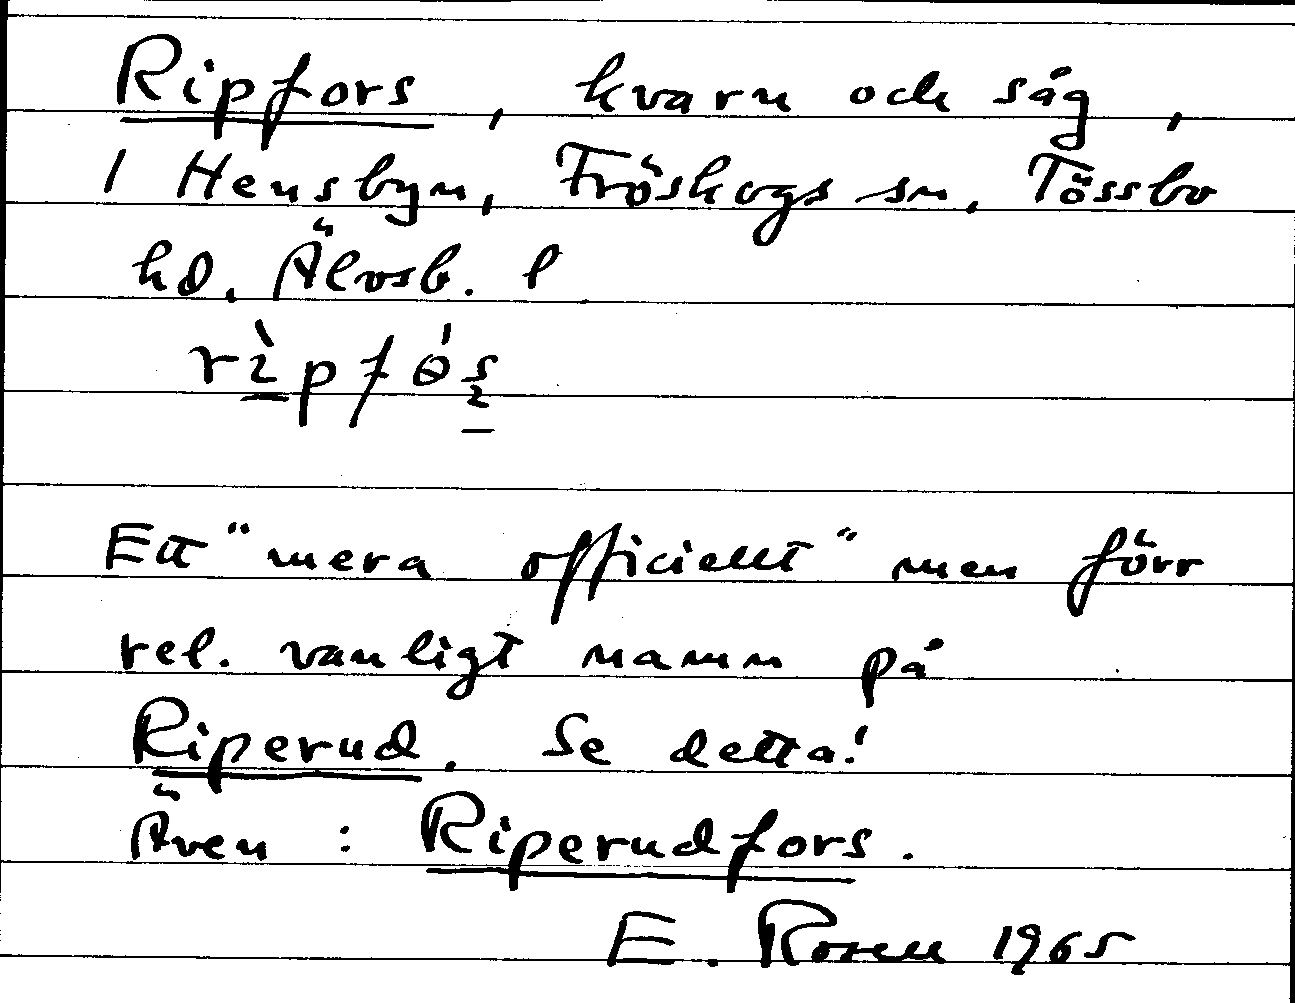 Ripfors, kvarn och såg,
i Hensbyn, Fröskogs sn, Tössbo
hd. Älvsb. l
Ett "mera officiellt" men förr
rel. vanligt namn på
Riperud. Se detta!
Även: Riperudfors.
E. Rosen 1965